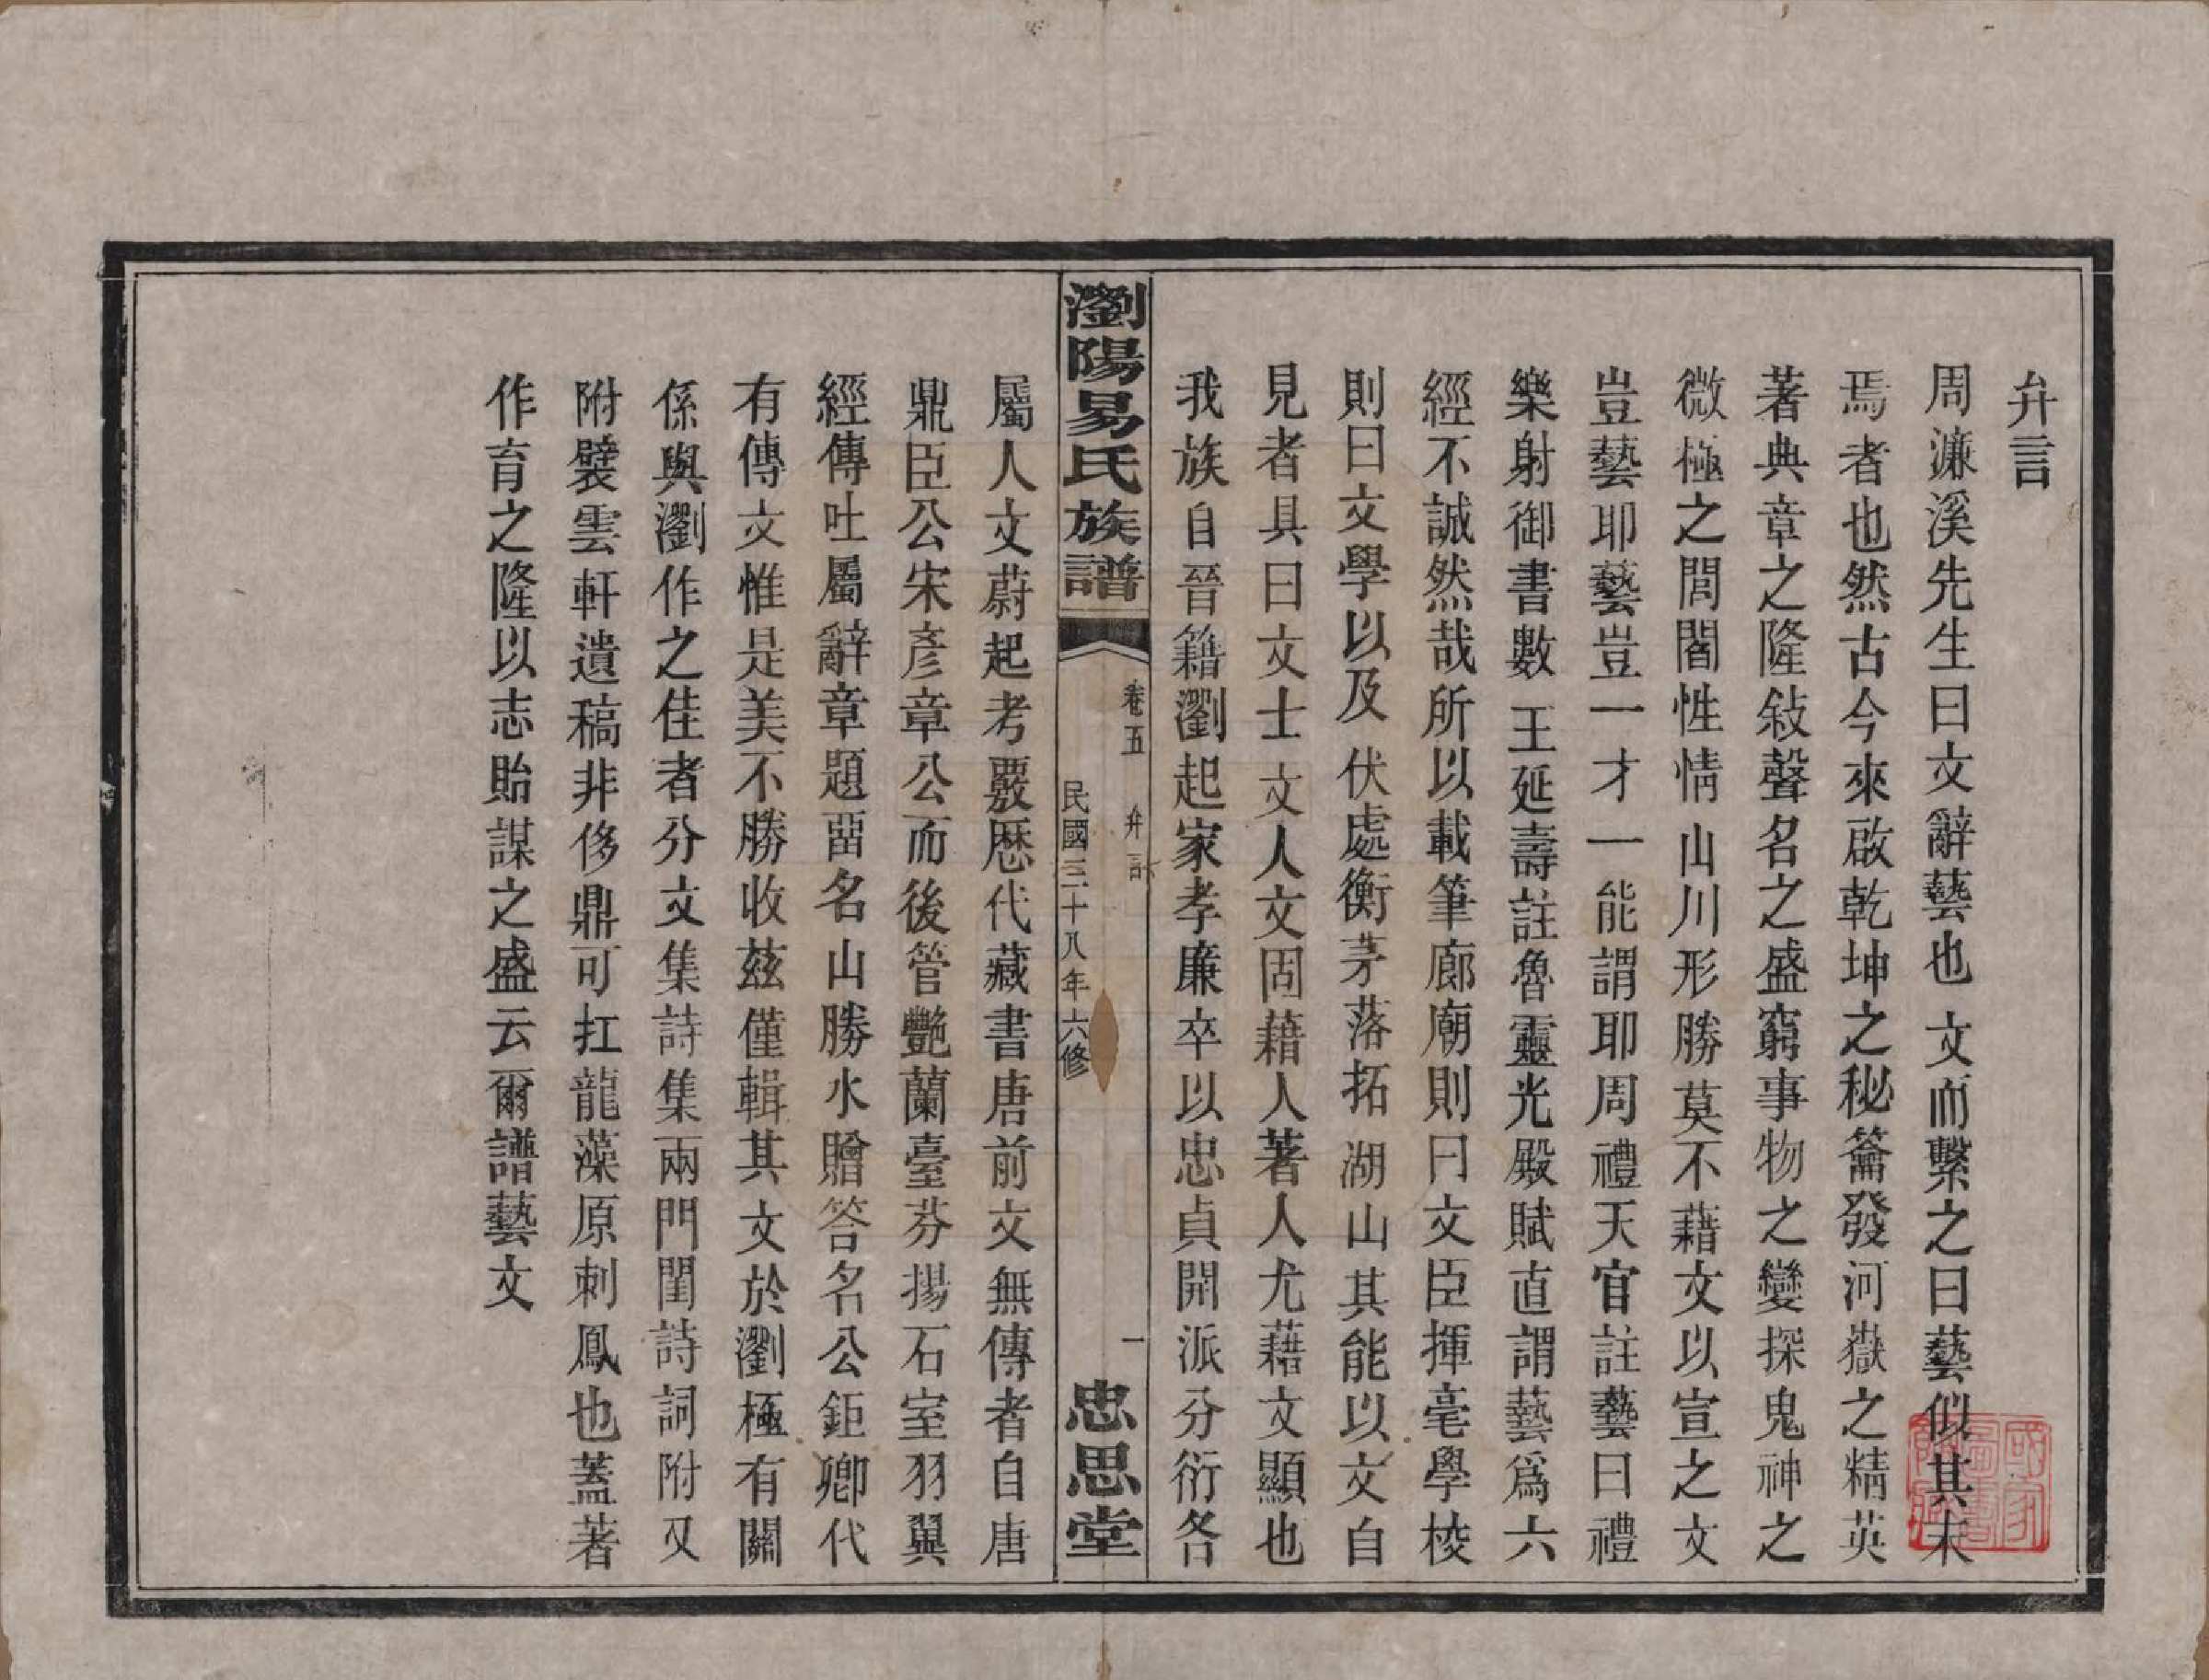 弁言
周濂溪先生曰文辭藝也文而繫之曰藝似其末
焉者也然古今來啟乾坤之秘籥發河嶽之精英
著典章之隆敍聲名之盛窮事物之變探鬼神之
微極之閭閻性情山川形勝莫不藉文以宣之文
豈藝耶藝豈一才一能謂耶周禮天官註藝曰禮
樂射御書數王延壽註魯靈光殿賦直謂藝爲六
經不誠然哉所以載筆廊廟則曰文臣揮毫學校
則曰文學以及伏處衡茅落拓湖山其能以文自
見者具曰文士文人文固藉人著人尤藉文顯也
我族自晉籍瀏起家孝廉卒以忠貞開派分衍各
瀏陽易氏族譜
卷五 弁言
民國三十八年六修
一
忠思堂
屬人文蔚起考覈歷代藏書唐前文無傳者自唐
鼎臣公宋彥章公而後管艷蘭臺芬揚石室羽翼
經傳吐屬辭章題畱名山勝水贈答名公鉅卿代
有傳文惟是美不勝收茲僅輯其文於瀏極有關
係與瀏作之佳者分文集詩集兩門閨詩詞附又
附襞雲軒遺稿非侈鼎可扛龍藻原刺鳳也蓋著
作育之隆以志貽謀之盛云爾譜藝文